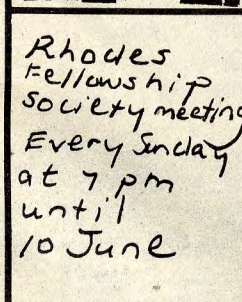 Rhodes
Fellowship
Society meeting
Every Sunday
at 7 pm
until
10 June